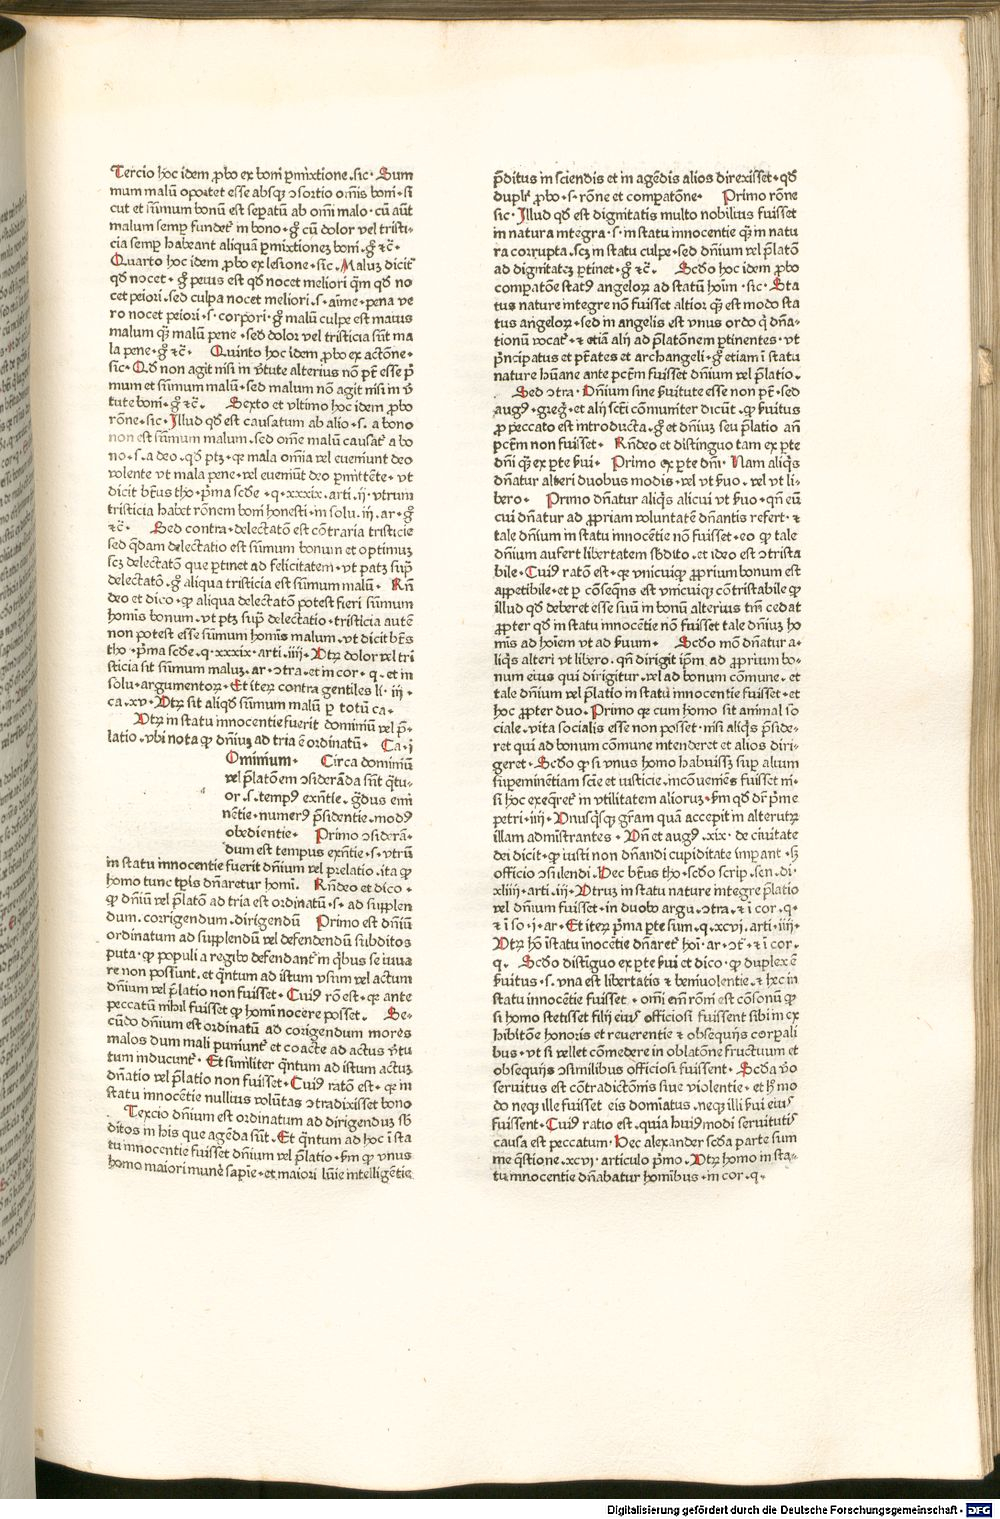 Tercio hoc idem ꝓbo ex boni ꝑmixtione .sic· Sum
mum malū oportet esse absqꝫ ↄsortio om̄is boni· si
cut et sūmum bonū est seꝑatū ab om̄i malo· cū aūt
malum semꝑ fundet᷑ in bono· gͦ cū dolor vel tristi-
cia semꝑ habeant aliquā ꝑmixtionez boni· gͦ ⁊c̄·
Quarto hoc idem ꝓbo ex lesione· sic· Maluꝫ dicit᷑
qđ nocet· gͦ peius est qđ nocet meliori qm̄ qđ no
cet peiori· sed culpa nocet meliori· s· aīme· pena ve
ro nocet peiori· s· corpori· gͦ malū culpe est maius
malum qꝫ malū pene· sed dolor vel tristicia sūt ma
la pene· gͦ ⁊c̄· Quinto hoc idem ꝓbo ex actōne·
sic· Qđ non agit nisi in v̄tute alterius nō pt̄ esse pͥ
mum et sūmum malū· sed malum nō agit nisi in v̄
tute boni· gͦ ⁊c̄· Sexto et vltimo hoc idem ꝓbo
rōne· sic· Illud qđ est causatum ab alio· s· a bono
non est sūmum malum· sed om̄e malū causat᷑ a bo
no· s· a deo· qđ ptꝫ· qꝛ mala om̄ia vel eveniunt deo
volente vt mala pene· vel eveniūt deo ꝑmittēte· vt
dicit bt̄us tho· pͥma scđe· q· xxxix· arti· ij· vtrum
tristicia habet rōnem boni honesti· in solu· iij· ar· gͦ
⁊c̄· Sed contra· delectatō est cōtraria tristicie
sed qͣdam delectatio est sūmum bonum et optimuꝫ
scꝫ delectatō que ꝑtinet ad felicitatem· vt patꝫ supͣ
delectatō· gͦ aliqua tristicia est sūmum malū· Rn̄
deo et dico· ꝙ aliqua delectatō potest fieri sūmum
hominis bonum· vt ptꝫ supͣ delectatio· tristicia autē
non potest esse sūmum hominis malum· vt dicit bt̄s
tho· pͥma scđe· q· xxxix· arti· iiij· Vtꝝ dolor vel tri
sticia sit sūmum maluꝫ· ar· ↄtra· et in cor· q· et in
solu· argumentoꝝ· Et iteꝝ contra gentiles li· iij·
ca· xv· Vtꝝ sit aliqđ sūmum malū ꝑ totū ca·
Vtꝝ in statu innocentie fuerit dominiū vel p̄-
latio· vbi nota ꝙ dn̄iuꝫ ad tria ē ordinatū· Ca· i
Ominium· Circa dominiū
vel p̄latōem ↄsiderāda sūt qͣtu-
or· s· tempꝰ exn̄tie· gͣdus emi
nētie· numerꝰ p̄sidentie· modꝰ
obedientie· Primo ↄsiderā-
dum est tempus exn̄tie· s· vtrū
in statu innocentie fuerit dn̄ium vel prelatio· ita ꝙ
homo tunc tꝑis dn̄aretur homini· Rn̄deo et dico·
ꝙ dn̄iū vel p̄latō ad tria est ordinatū· s· ad supplen
dum· corrigendum· dirigendū Primo est dn̄iū
ordinatum ad supplendū vel defendendū subditos
puta· ꝙ populi a regibꝰ defendant᷑ in qͥbus se iuua
re non possunt· et qͣntum ad istum vsum vel actum
dn̄ium vel p̄latio non fuisset· Cuiꝰ rō est· qꝛ ante
peccatū nihil fuisset ꝙ homini nocere posset· Se-
cūdo dn̄ium est ordinatū ad corigendum mores
malos dum mali puniunt᷑ et coacte ad actus v̄tu
tum inducunt᷑· Et similiter qͣntum ad istum actuꝫ
dn̄atio vel p̄latio non fuisset· Cuiꝰ ratō est· qꝛ in
statu innocētie nullius volūtas ↄtradixisset bono
Tercio dn̄ium est ordinatum ad dirigenduꝫ sb̄
ditos in his que agēda sūt· Et qͣntum ad hoc ī sta
tu innocentie fuisset dn̄ium vel p̄latio· ẜm ꝙ vnus
homo maiori munē sapīe· et maiori lūie intelligētie
p̄ditus in sciendis et in agēdis alios direxisset· qđ
duplr̄ ꝓbo· s· rōne et comꝑatōne· Primo rōne
sic· Illud qđ est dignitatis multo nobilius fuisset
in natura integra· s· in statu innocentie qꝫ in natu
ra corrupta· scꝫ in statu culpe· sed dn̄ium vel p̄latō
ad dignitateꝫ ꝑtinet· gͦ ⁊c̄· Scđo hoc idem ꝓbo
comꝑatōne statꝰ angeloꝝ ad statū hoīm· sic· Sta
tus nature integre nō fuisset altior qꝫ est modo sta
tus angeloꝝ· sed in angelis est vnus ordo qͥ dn̄a-
tionū vocat᷑· ⁊ etiā alij ad p̄latōnem ꝑtinentes· vt
pͥncipatus et ptāates et archangeli· gͦ etiam ī statu
nature hūane ante pctm̄ fuisset dn̄ium vel p̄latio·
Sed ↄtra· Dn̄ium sine ẜuitute esse non pt̄· sed
augꝰ· gregͦ· et alij scti cōmuniter dicūt· ꝙ ẜuitus
ꝓ peccato est introducta· gͦ et dn̄iuꝫ seu p̄latio an̄
pctm̄ non fuisset· Rn̄deo et distinguo tam ex ꝑte
dn̄i qꝫ ex ꝑte ẜui· Primo ex ꝑte dn̄i· Nam aliqͥs
dn̄atur alteri duobus modis· vel vt ẜuo· vel vt li-
bero· Primo dn̄atur aliqͥs alicui vt ẜuo· qn̄ eū
cui dn̄atur ad ꝓpriam voluntatē dn̄antis refert· ⁊
tale dn̄ium in statu innocētie nō fuisset· eo ꝙ tale
dn̄ium aufert libertatem sb̄dito· et ideo est ↄtrista
bile· Cuiꝰ ratō est· qꝛ vnicuiqꝫ ꝓprium bonum est
appetibile· et ꝑ cōseqn̄s est vnicuiqꝫ cōtristabile ꝙ
illud qđ deberet esse suū in bonū alterius tm̄ cedat
ꝓpter qđ in statu innocētie nō fuisset tale dn̄iuꝫ ho
minis ad hoīem vt ad ẜuum· Scđo mō dn̄atur a-
liqͥs alteri vt libero· qn̄ dirigit ip̄m ad ꝓprium bo-
num eius qui dirigitur· vel ad bonum cōmune· et
tale dn̄ium vel p̄latio in statu innocentie fuisset· et
hoc ꝓpter duo· Primo qꝛ cum homo sit animal so
ciale· vita socialis esse non posset· nisi aliqͥs p̄side-
ret qui ad bonum cōmune intenderet et alios diri-
geret· Scđo ꝙ si vnus homo habuissꝫ suꝑ alium
suꝑeminētiam scīe et iusticie· incōueniēs fuisset ni-
si hoc exeqͥret᷑ in vtilitatem aliorum· ẜm qđ dr̄ pͥme
petri· iiij· Vnusqͥsqꝫ gr̄am quā accepit in alterutꝝ
illam administrantes· Vn̄ et augꝰ· xix· de ciuitate
dei dicit· ꝙ iusti non dn̄andi cupiditate imꝑant· sꝫ
officio ↄsulendi· Hec bt̄us tho· scđo scrip· sen· di·
xliiij· arti· iij· Vtruꝫ in statu nature integre p̄latio
vel dn̄ium fuisset· in duobꝰ argu· ↄtra· ⁊ ī cor· q·
⁊ ī so· i· ar· Et iteꝝ pͥma ꝑte sum· q· xcvi· arti· iiij·
Vtꝝ hō ī statu inocētie dn̄aret᷑ hoī· ar· ↄt᷑· ⁊ ī cor·
q· Scđo distīguo ex ꝑte ẜui et dico· ꝙ duplex ē
ẜuitus· s· vna est libertatis ⁊ beniuolentie· ⁊ hec in
statu innocētie fuisset· om̄i em̄ rōni est cōsonū ꝙ
si homo stetisset filij eiꝰ officiosi fuissent sibi in ex
hibitōne honoris et reuerentie ⁊ obsequijs corꝑali
bus· vt si vellet cōmedere in oblatōne fructuum et
obsequijs ↄsimilibus officiosi fuissent· Scđa v̄o
seruitus est cōtradictōnis siue violentie· et hͦ mo
do neqꝫ ille fuisset eis dominatus· neqꝫ illi ẜui eiꝰ
fuissent· Cuiꝰ ratio est· quia huiꝰmodi seruitutis
causa est peccatum· Hec alexander scđa parte sum
me qͣstione· xcvi· articulo pͥmo· Vtꝝ homo in sta-
tu innocentie dn̄abatur hominibus· in cor· q·
Digitalisierung gefördert durch die Deutsche Forschungsgemeinschaft - DFG